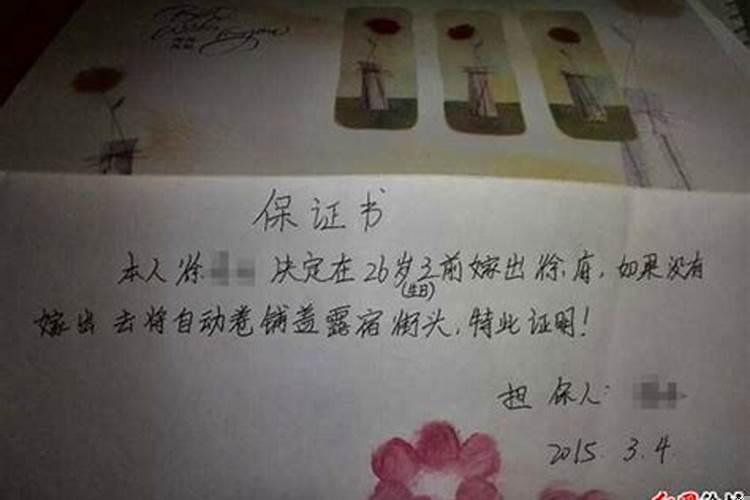 保证书
本人徐 决定在26岁之前嫁出徐府,如果没有
(生日)
嫁出去将自动卷铺盖露宿街头,特此证明!
担保人:
2015.3.4